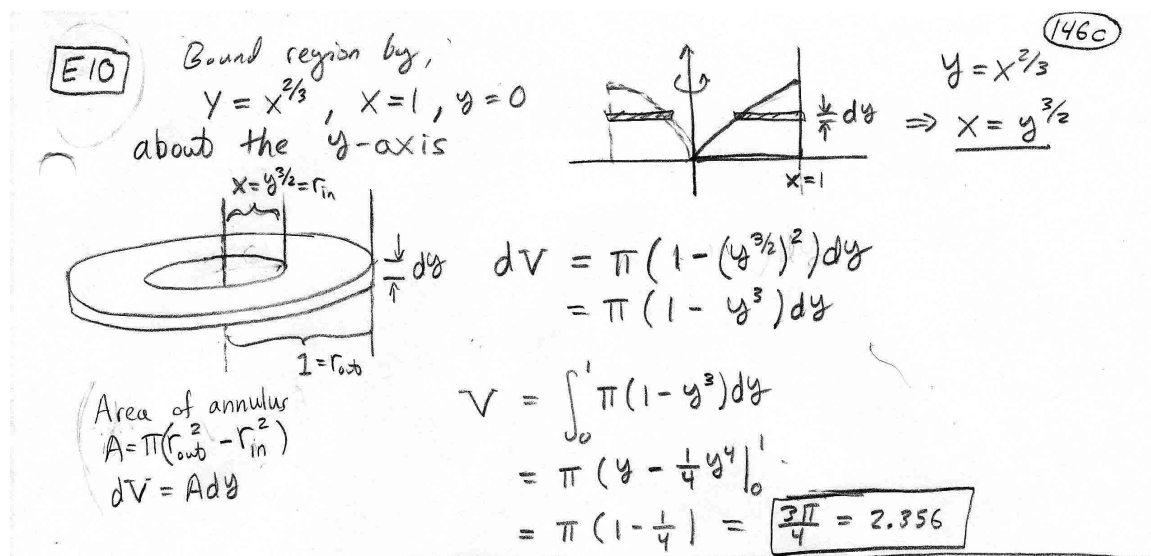 146c
E10
Bound region by,
y = x^{2/3}, x = 1, y = 0
about the y-axis
dy
x=1
y = x^{2/3}
⇒ x = y^{3/2}
x = y^{3/2} = r_{in}
dy
1 = r_{out}
Area of annulus
A = π(r_{out}^2 - r_{in}^2)
dV = A dy
dV = π(1 - (y^{3/2})^2)dy
= π(1 - y^3)dy
V = ∫_0^1 π(1 - y^3)dy
= π(y - \frac{1}{4}y^4|_0^1
= π(1 - \frac{1}{4}) = \frac{3π}{4} = 2.356